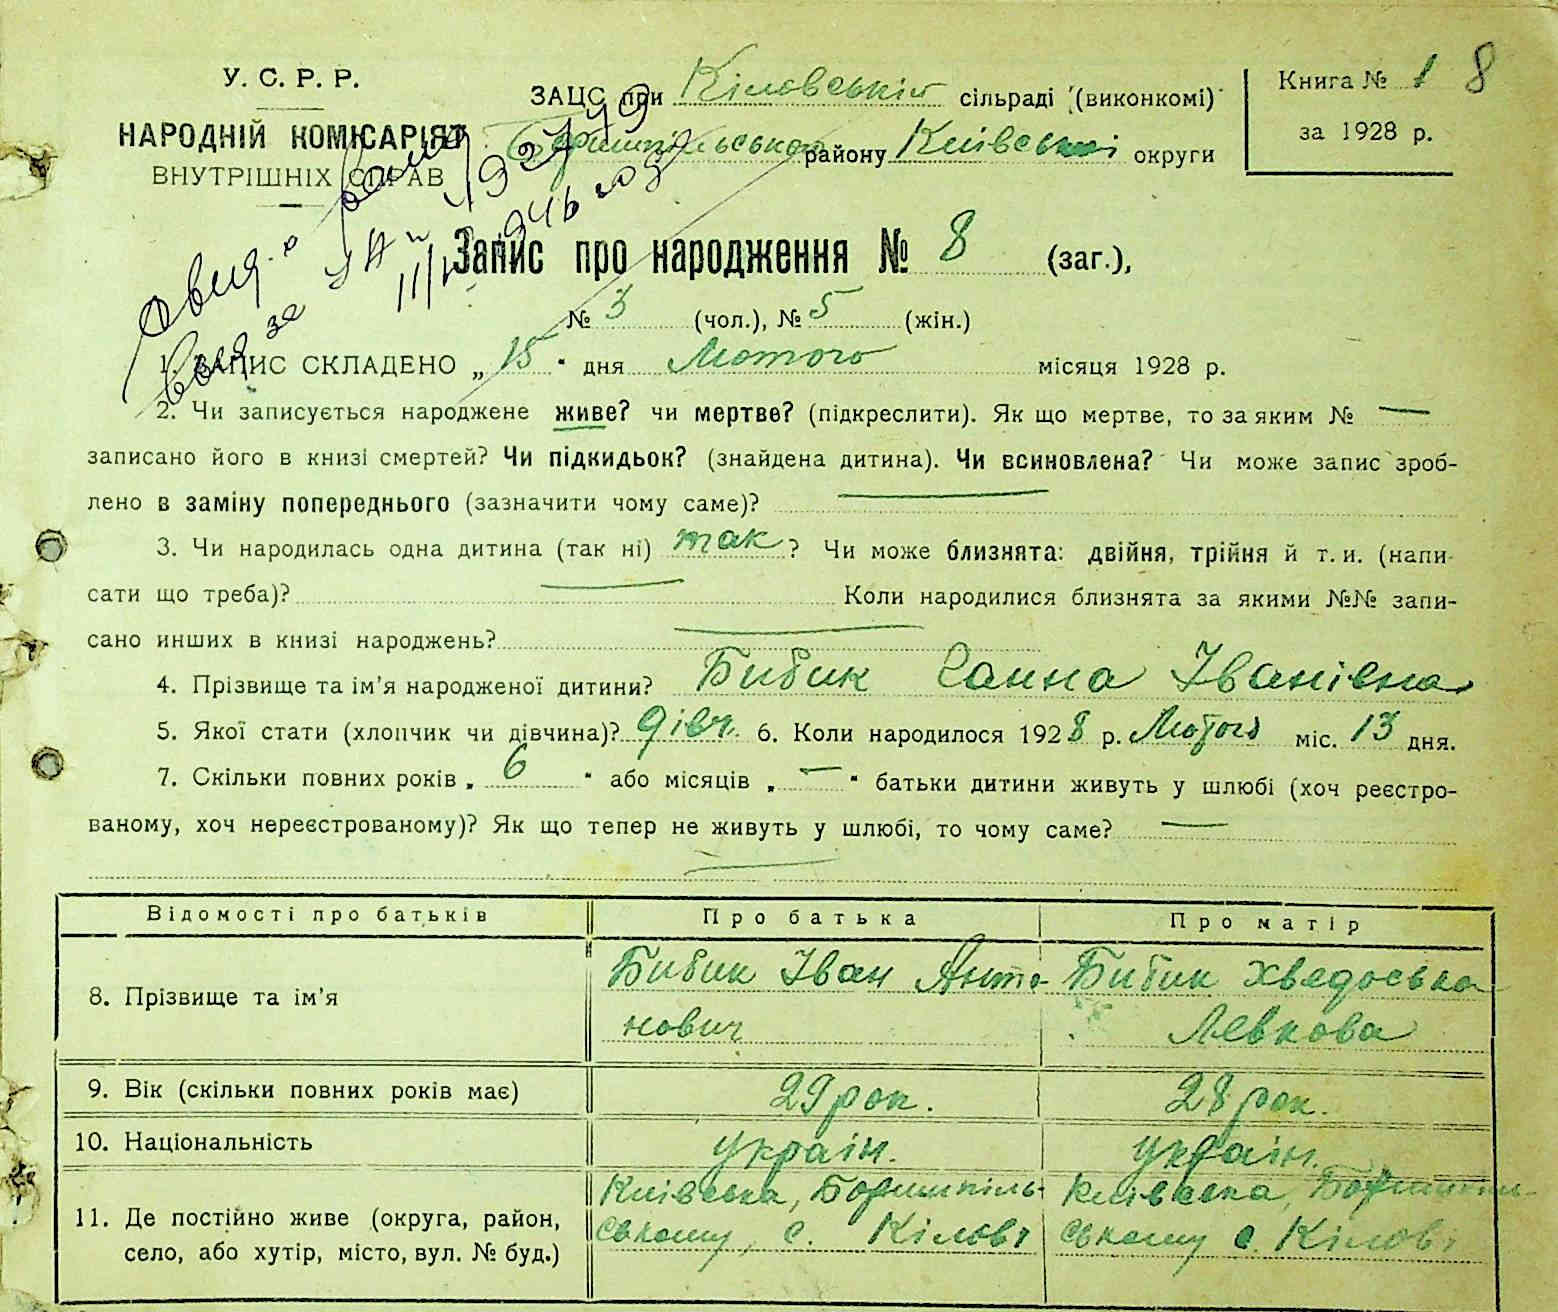 У. С. Р. Р.
НАРОДНІЙ КОМІСАРІЯТ
ВНУТРІШНІХ СПРАВ
ЗАЦС при Кіловській сільраді (виконкомі)
Боришпільського району Київської округи
Книга № 1 8
за 1928 р.
Запис про народження № 8 (заг.),
№ 3 (чол.), № 5 (жін.)
1. ЗАПИС СКЛАДЕНО „ 15 " дня Лютого місяця 1928 р.
2. Чи записується народжене живе? чи мертве? (підкреслити). Як що мертве, то за яким № —
записано його в книзі смертей? Чи підкидьок? (знайдена дитина). Чи всиновлена? Чи може запис зроб-
лено в заміну попереднього (зазначити чому саме)? —
3. Чи народилась одна дитина (так ні) так ? Чи може близнята: двійня, трійня й т. и. (напи-
сати що треба)? — Коли народилися близнята за якими №№ запи-
сано инших в книзі народжень? —
4. Прізвище та ім'я народженої дитини? Бибик Ганна Іванівна
5. Якої стати (хлопчик чи дівчина)? дівч. 6. Коли народилося 1928 р. Лютого міс. 13 дня.
7. Скільки повних років „ 6 " або місяців „ — " батьки дитини живуть у шлюбі (хоч реєстро-
ваному, хоч нереєстрованому)? Як що тепер не живуть у шлюбі, то чому саме? —
Відомості про батьків Про батька Про матір
8. Прізвище та ім'я Бибик Іван Анто- Бибик Хведоська
нович Левкова
9. Вік (скільки повних років має) 29 рок. 28 рок.
10. Національність україн. україн.
11. Де постійно живе (округа, район, Київська, Боришпіль- Київська, Боришпіль-
село, або хутір, місто, вул. № буд.) ському, с. Кілові ському с. Кілові